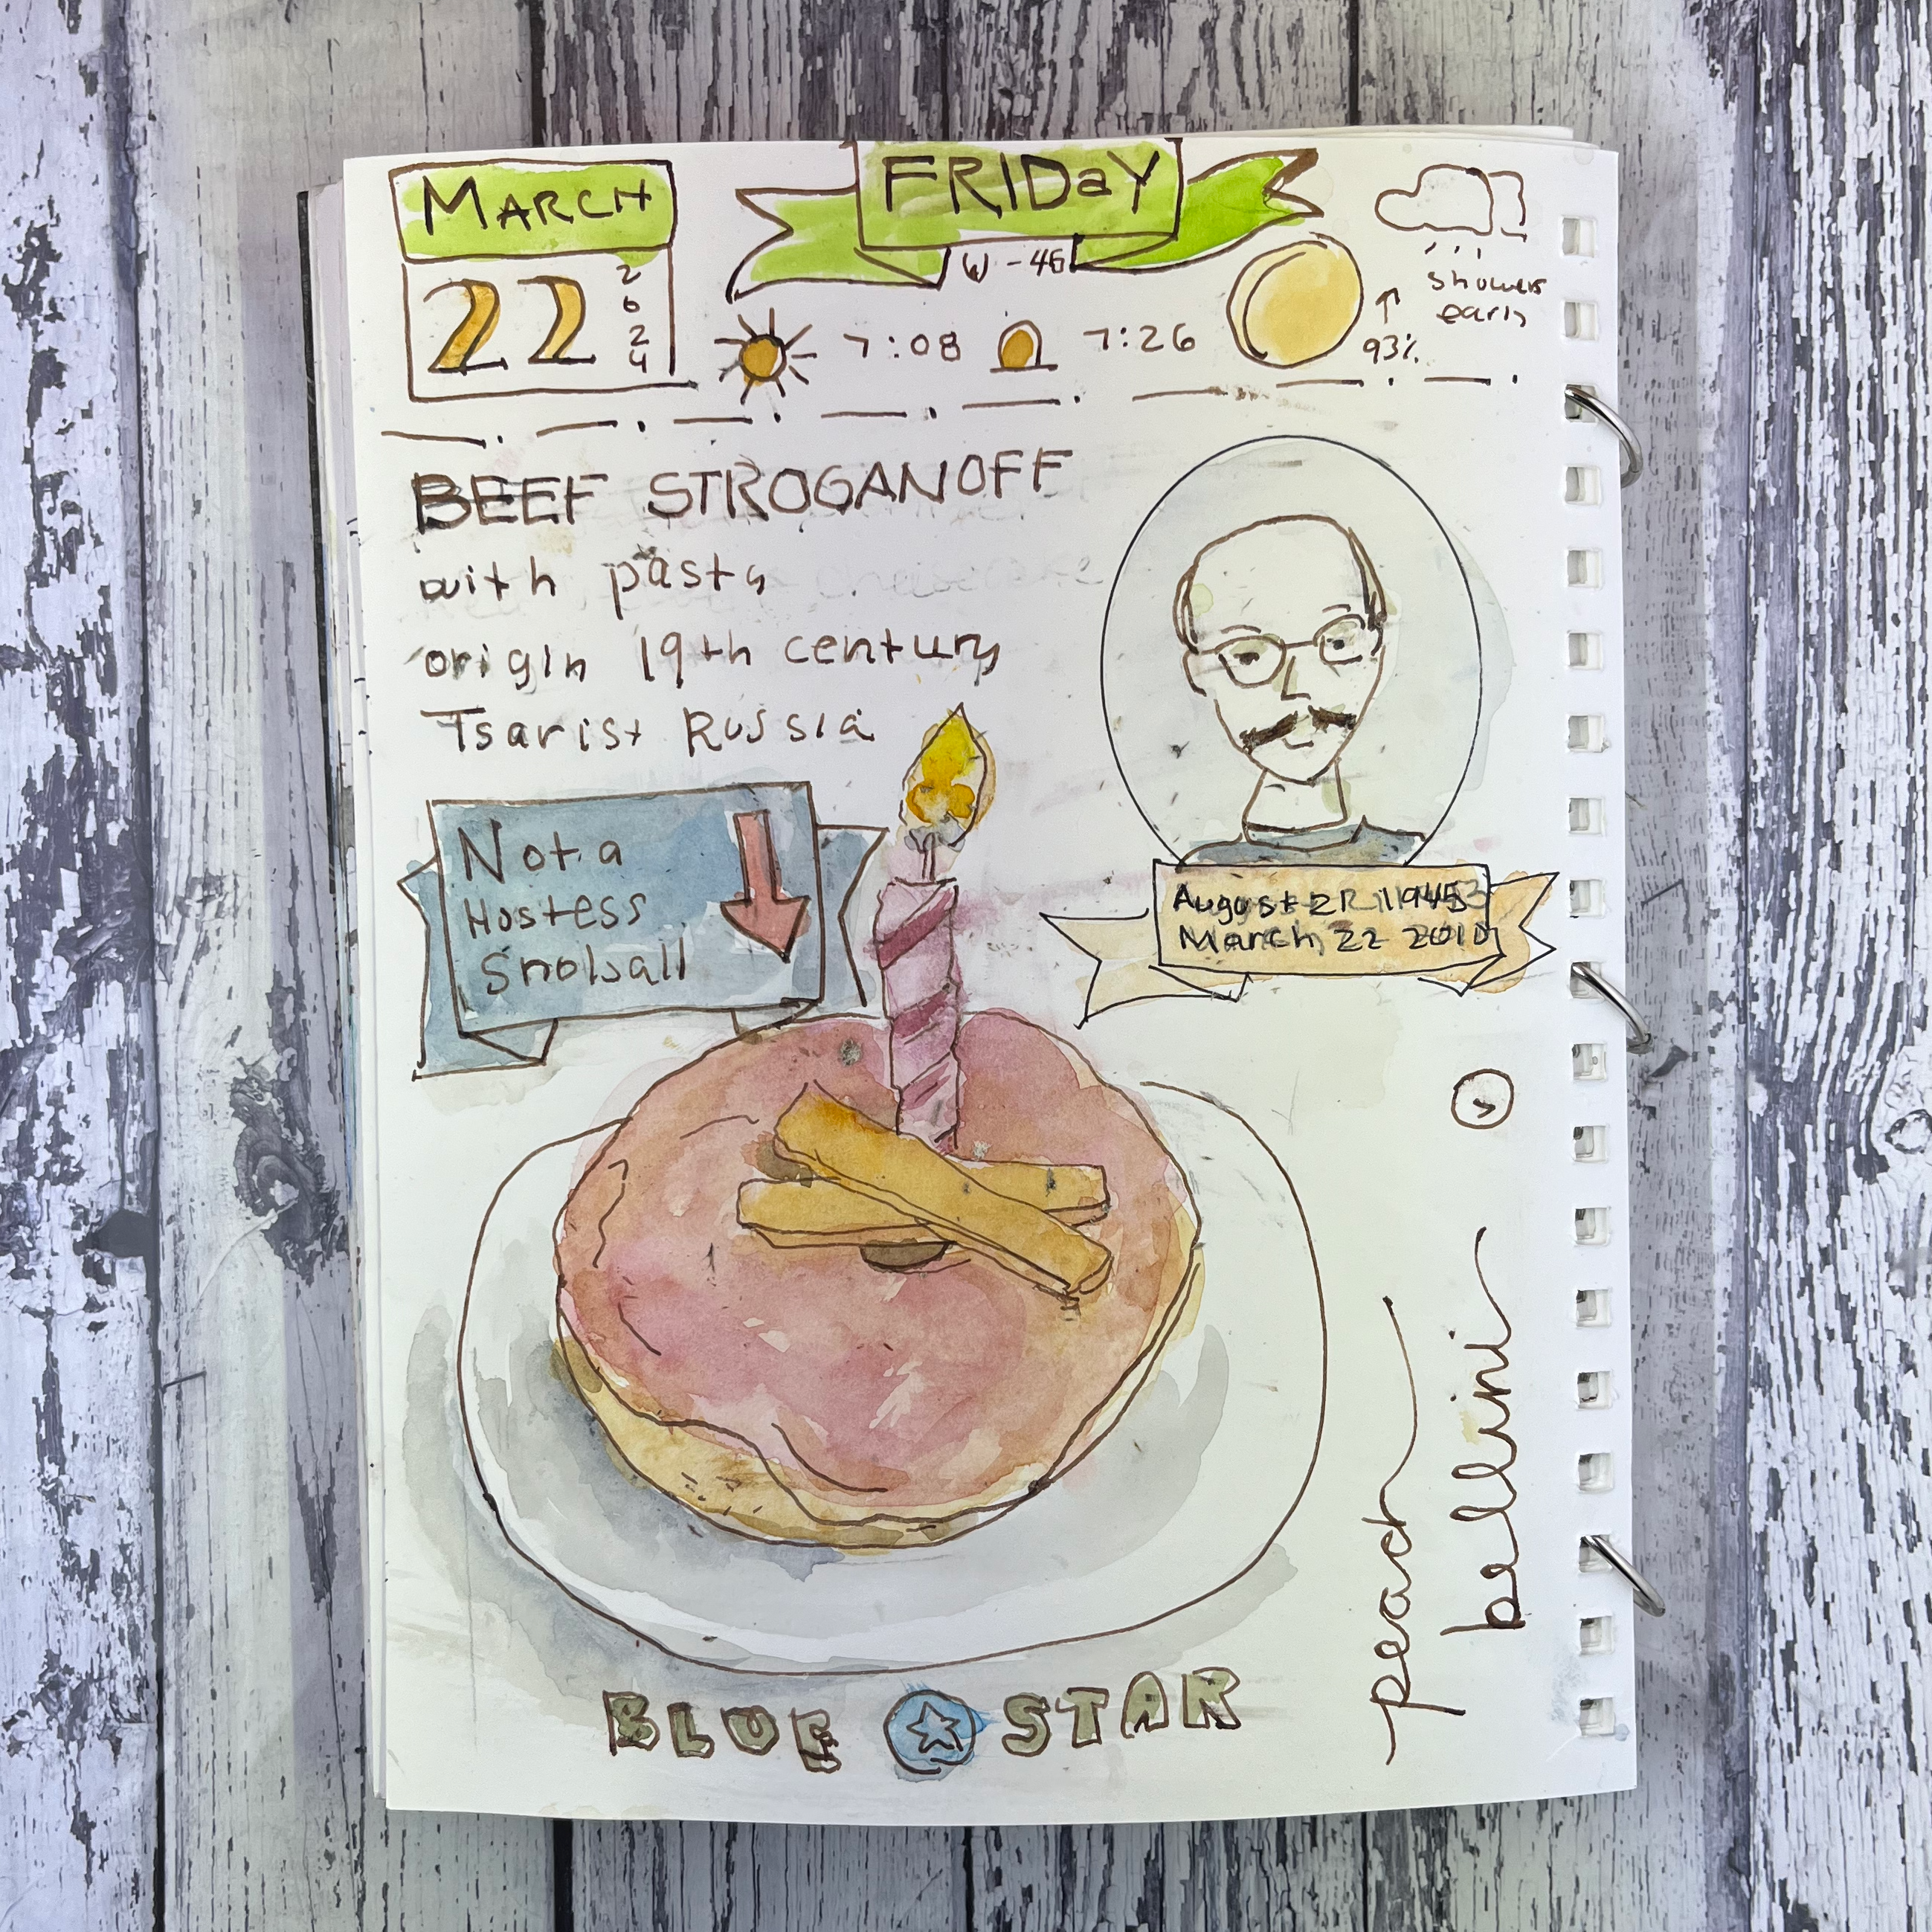 MARCH
22
2
0
2
4
FRIDaY
W - 46
7:08
7:26
93%
showers
early
BEEF STROGANOFF
with pasta
origin 19th century
Tsarist Russia
Not a
Hostess
Snolsall
August
March 22 2010
peach
bellini
BLUE STAR